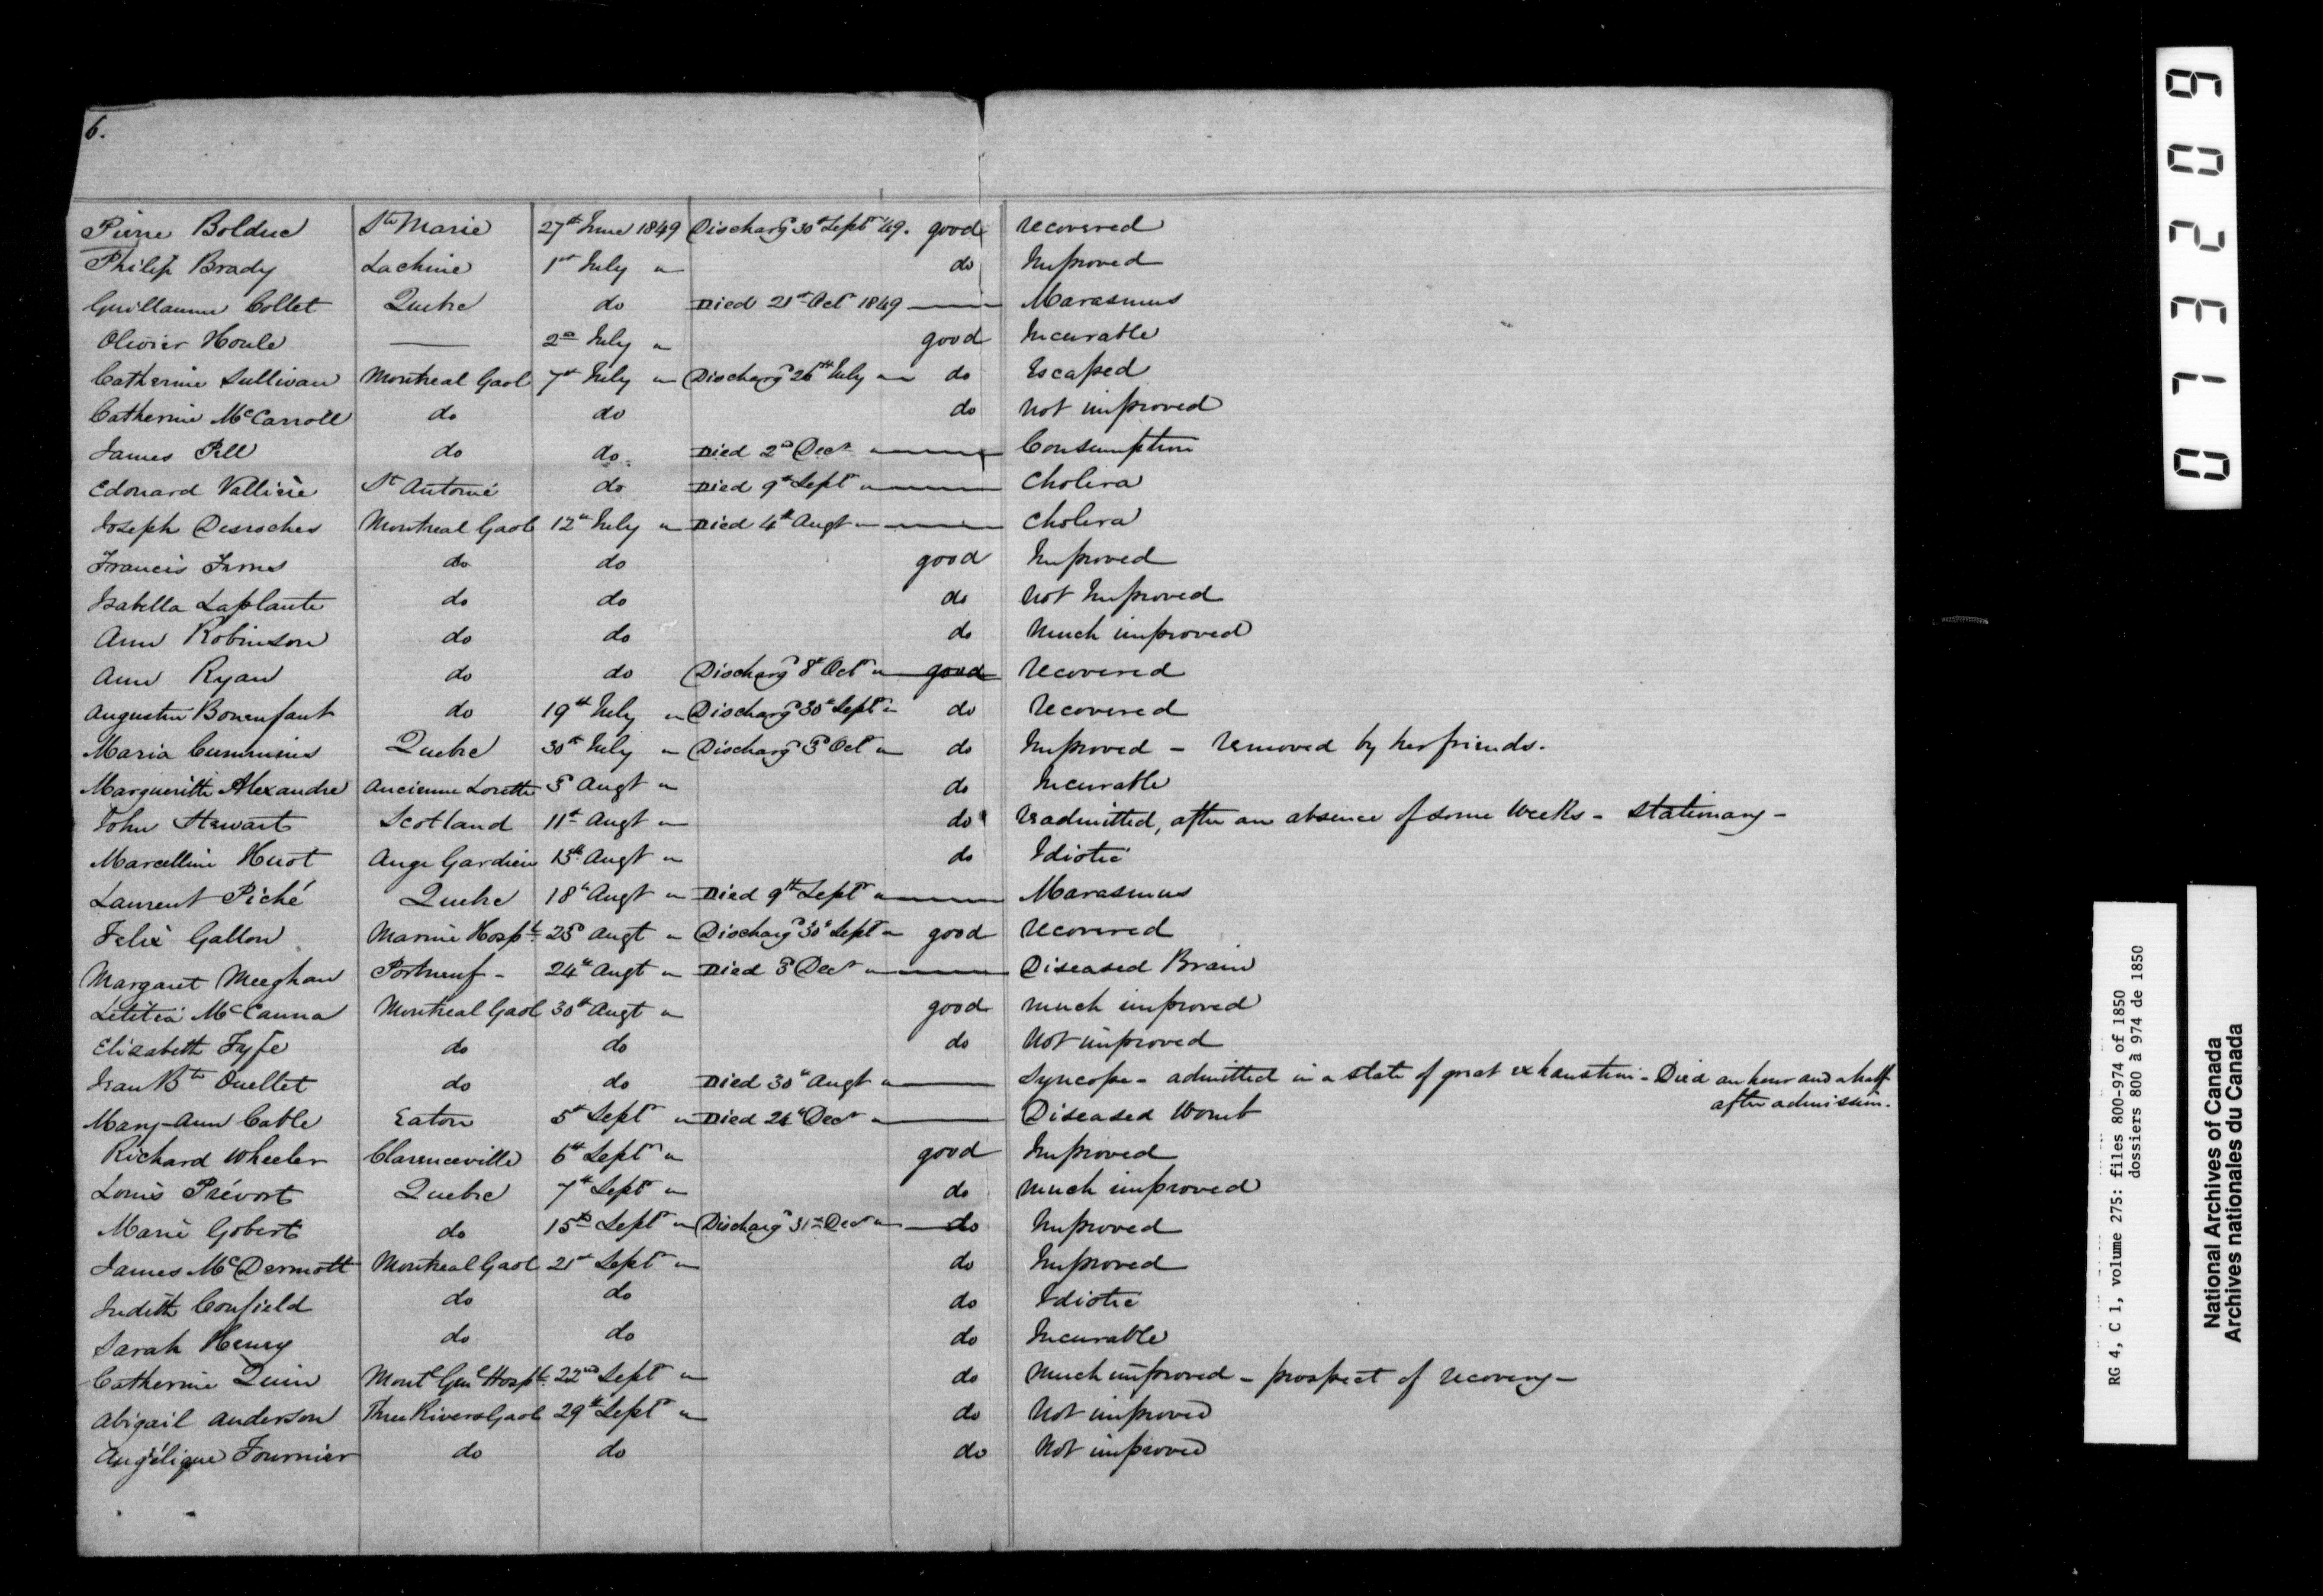 6.
Pierre Bolduc Ste Marie 27th June 1849 Discharg'd 30th Sept '49. good recovered
Philip Brady Lachine 1st July " do Improved
Guillaume Collet Quebec do Died 21st Oct 1849 — Marasmus
Olivier Houle — 2nd July " good Incurable
Catherine Sullivan Montreal Gaol 7th July " Discharg'd 26th July " do Escaped
Catherine McCarroll do do do not improved
James Pell do do Died 2nd Decr " — Consumption
Edouard Vallière St Antoine do Died 9th Sept " — Cholera
Joseph Desroches Montreal Gaol 12th July " Died 4th Augt " — Cholera
Francis do do good Improved
Isabella Laplante do do do not Improved
Ann Robinson do do do Much improved
Ann Ryan do do Discharg'd 8th Oct " good recovered
Augustin Bonenfant do 19th July " Discharg'd 30th Sept " do recovered
Maria Cummins Quebec 30th July " Discharg'd 3d Oct " do Improved - removed by her friends.
Margueritte Alexandre Ancienne Lorette 3d Augt " do Incurable
John Stewart Scotland 11th Augt " do readmitted, after an absence of some weeks - stationary -
Marcelline Huot Ange Gardien 15th Augt " do Idiotic
Laurent Piché Quebec 18th Augt " Died 9th Sept " — Marasmus
Felix Gallon Marine Hospl. 23d Augt " Discharg'd 30th Sept " good recovered
Margaret Meeghan Portneuf - 24th Augt " Died 3d Decr " — Diseased Brain
Letitia McCanna Montreal Gaol 30th Augt " good much improved
Elizabeth Fyfe do do do Not improved
Jean Bte Ouellet do do Died 30th Augt " — Syncope - admitted in a state of great exhaustion - Died an hour and a half
after admission.
Mary-Ann Cable Eaton 5th Sept " Died 24th Decr " — Diseased Womb
Richard Wheeler Clarenceville 6th Sept " good Improved
Louis Prévost Quebec 7th Sept " do much improved
Marie Gobert do 15th Sept " Discharg'd 31st Decr " do Improved
James McDermott Montreal Gaol 21st Sept " do Improved
Judith Confield do do do Idiotic
Sarah Henry do do do Incurable
Catherine Quin Montl Genl Hospl. 22nd Sept " do Much improved - prospect of recovery -
Abigail Anderson Three Rivers Gaol 29th Sept " do Not improved
Angélique Fournier do do do Not improved
073209
RG 4, C 1, volume 275: files 800-974 of 1850
dossiers 800 à 974 de 1850
National Archives of Canada
Archives nationales du Canada